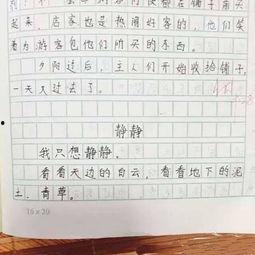 起来，店家也是热闹好客的，他们笑
着为游客包他们所买的东西。
夕阳过后，主人们开始收拾铺子，
一天又过去了。
静静
我只想静静。
看看天边的白云，看看地下的泥
土，青草。
16×20